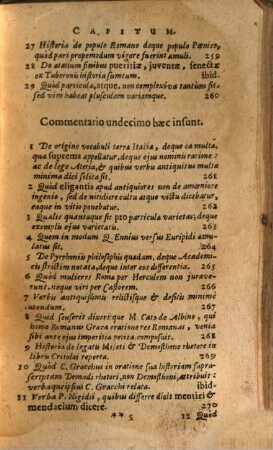 CAPITUM.
27 Historia de populo Romano deque populo Pœnico,
quod pari propemodum vigore fuerint æmuli. 259
28 De ætatum finibus pueritiæ, juventæ, senectæ
ex Tuberonis historia sumtum. ibid.
29 Quod particula, atque, non complexiva tantum sit,
sed vim habeat plusculam variamque. 260
Commentario undecimo hæc insunt.
1 De origine vocabuli terra Italia, deque ea multa,
qua suprema appellatur, deque ejus nominis ratione:
ac de lege Ateria, & quibus verbis antiquitus multa
minima dici solita sit. 261
2 Quod eligantis apud antiquiores non de amæniore
ingenio, sed de nitidiore cultu atque victu dicebatur,
eaque in vitio ponebatur. 262
3 Qualis quantaque sit pro particulæ varietas; deque
exemplis ejus varietatis. 263
4 Quem in modum Q. Ennius versus Euripidi æmu-
latus sit. 264
5 De Pyrrhoniis philosophis quædam, deque Academi-
cis strictim notata, deque inter eos differentia. 265
6 Quod mulieres Romæ per Herculem non jurave-
runt, neque viri per Castorem. 267
7 Verbis antiquissimis relictisque & desitis minime
utendum. 267
8 Quid senserit dixeritque M. Cato de Albino, qui
homo Romanus Græca oratione res Romanas, venia
sibi ante ejus imperitiæ petita, composuit. 268
9 Historia de legatis Mileti & Demosthene rhetore in
libris Critolai reperta. 269
10 Quod C. Gracchus in oratione sua historiam supra-
scriptam Demadi rhetori, non Demostheni, attribuit:
verbaque ipsius C. Gracchi relata. ibid.
11 Verba P. Nigidii, quibus differre dicit mentiri &
mendacium dicere. 270
** 5 12 Quod